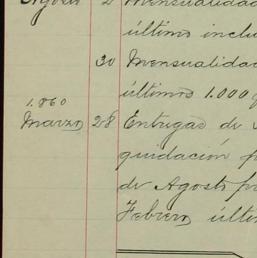 Agosto 2 Mensualidad
último inclu
30 Mensualidad
últimos 1.000
1.860
Marzo 28 Entregas de
quidación
de Agosto
Febrero últi